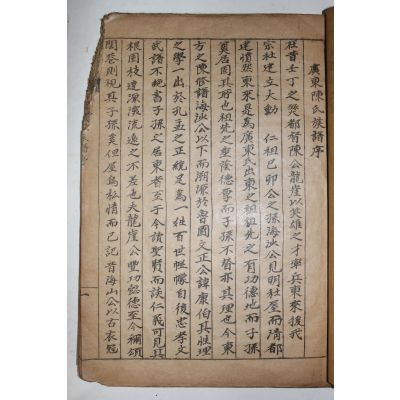 廣東陳氏族譜序
在昔壬丁之燹都督陳公龍崖以英雄之才率兵東來援我
宗社建立大勳 仁祖己卯公之孫海汕公見明社屋而清都
建憤然東來是爲廣東氏出東之祖祖先之有功德也而子孫
奠居固其所也祖先之垂陰德厚而子孫不替亦其理也今東
方之陳修譜海汕公以下而溯源於魯國文正公諱康伯其性理
之學一出於孔孟之正統是爲一姓百世帡幪自後忠孝文
武譜不絶書子孫之居東者至于今讀聖賢而談仁義可見其
根固枝達源深流遠之不差也夫龍崖公豐功懿德至今稱頌
閭巷則視其子孫奚但屋烏私情而已記昔海山公以古衣冠